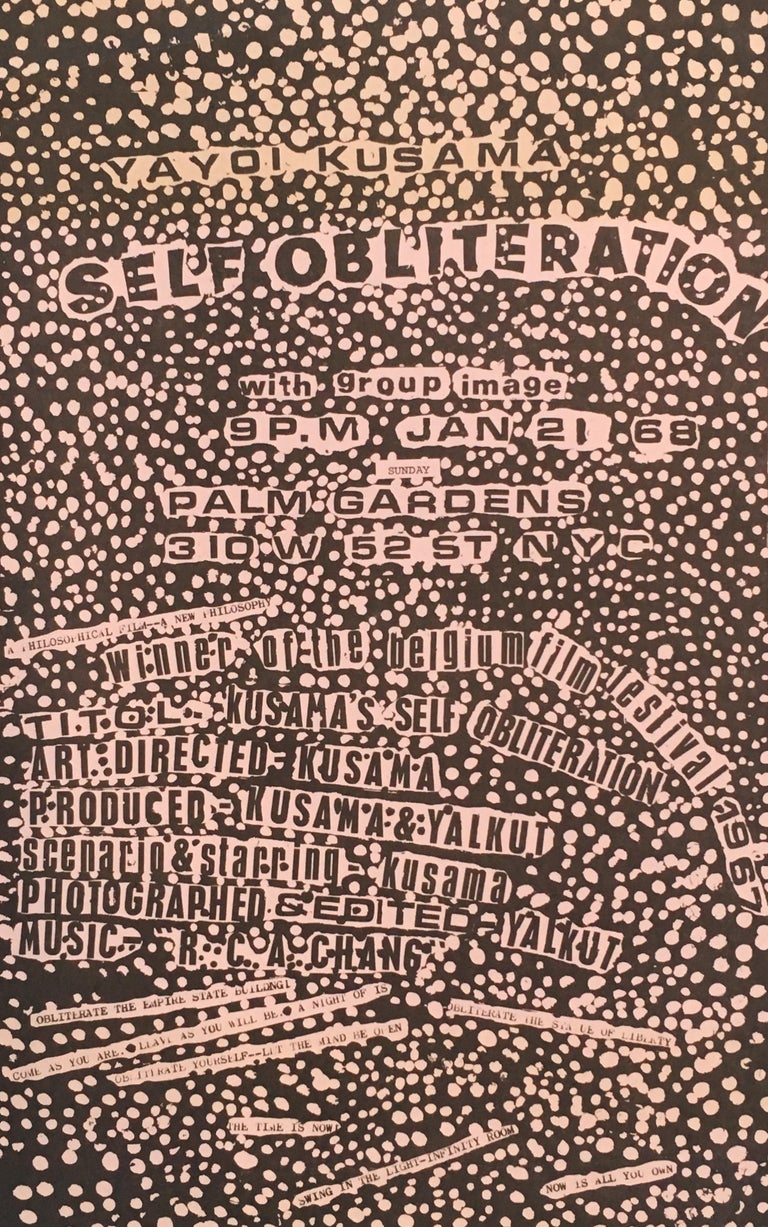 YAYOI KUSAMA
SELF OBLITERATION
with group image
9 P.M JAN 21 68
SUNDAY
PALM GARDENS
310 W 52 ST N Y C
A PHILOSOPHICAL FILM--A NEW PHILOSOPHY
winner of the belgium film festival 1967
T.I.T.O.L.- KUSAMA'S SELF OBLITERATION
ART DIRECTED- KUSAMA
PRODUCED- KUSAMA & YALKUT
scenario & starring- Kusama
PHOTOGRAPHED & EDITED- YALKUT
MUSIC- "R. C. A CHANG"
OBLITERATE THE EMPIRE STATE BUILDING!
COME AS YOU ARE. LEAVE AS YOU WILL BE. A NIGHT OF IS
OBLITERATE YOURSELF--LET THE MIND BE OPEN
OBLITERATE THE STATUE OF LIBERTY
THE TIME IS NOW!
SWING IN THE LIGHT-INFINITY ROOM
NOW IS ALL YOU OWN